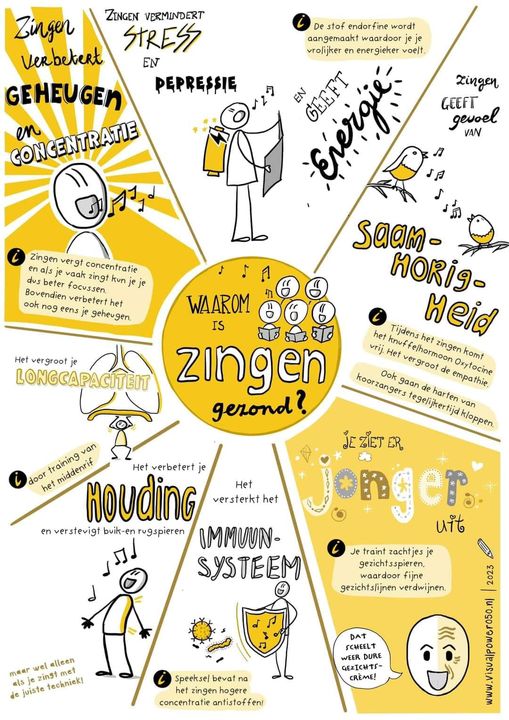 Zingen
verbetert
GEHEUGEN
en
CONCENTRATIE
i Zingen vergt concentratie
en als je vaak zingt kun je je
dus beter focussen.
Bovendien verbetert het
ook nog eens je geheugen.
ZINGEN VERMINDERT
STRESS
EN
DEPRESSIE
i De stof endorfine wordt
aangemaakt waardoor je je
vrolijker en energieker voelt.
EN
GEEFT
Energie
Zingen
GEEFT
gevoel
VAN
SAAM-
HORIG-
HEID
i Tijdens het zingen komt
het knuffelhormoon Oxytocine
vrij. Het vergroot de empathie.
Ook gaan de harten van
koorzangers tegelijkertijd kloppen.
WAAROM
IS
zingen
gezond?
Het vergroot je
LONGCAPACITEIT
i door training van
het middenrif
Het verbetert je
HOUDING
en verstevigt buik-en rugspieren
maar wel alleen
als je zingt met
de juiste techniek!
Het
versterkt het
IMMUUN-
SYSTEEM
i Speeksel bevat na
het zingen hogere
concentratie antistoffen!
JE ZIET ER
jonger
uit
i Je traint zachtjes je
gezichtsspieren,
waardoor fijne
gezichtslijnen verdwijnen.
DAT
SCHEELT
WEER DURE
GEZICHTS-
CRÈME!
www.visualpower050.nl | 2023